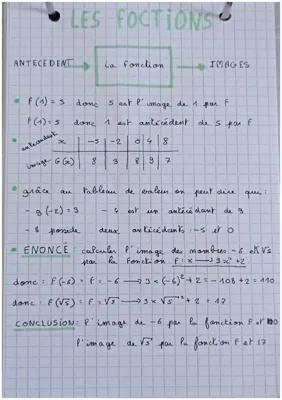 LES FOCTIONS
ANTECEDENT → La fonction → IMAGES
• F(1)=5 donc 5 est l'image de 1 par F
F(1)=5 donc 1 est antécédent de 5 par F
• antécédent x | -5 | -2 | 0 | 4 | 8
image G(x) | 8 | 3 | 8 | 9 | 7
• grâce au tableau de valeurs on peut dire que :
- g(-2)=3 - 4 est un antécédant de 9
- 8 possède deux antécédants : -5 et 0
• ENONCE : calculer l'image des nombres -6 et √5
par la fonction F : x → 3x²+2
donc : F(-6) = F = -6 → 3×(-6)²+2 = -108+2 = 110
donc : F(√5) = F = √5 → 3×√5²+2 = 17
CONCLUSION : l'image de -6 par la fonction F et 110
l'image de √5 par la fonction F et 17